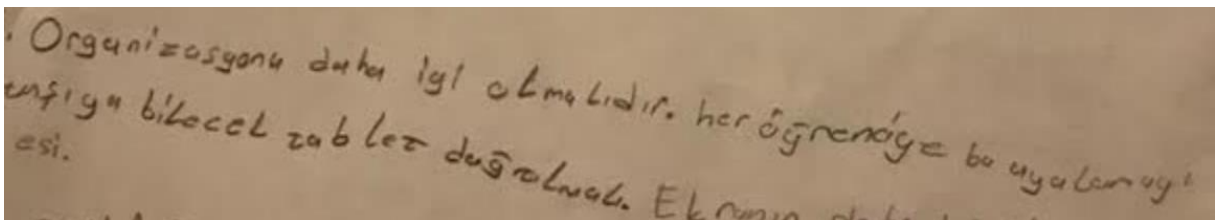 . Organizasyonu daha iyi olmalıdır. her öğrenciye bu uyulamayı
unşıya bilecel tablet dağıtılmalı. Ekranın
esi.